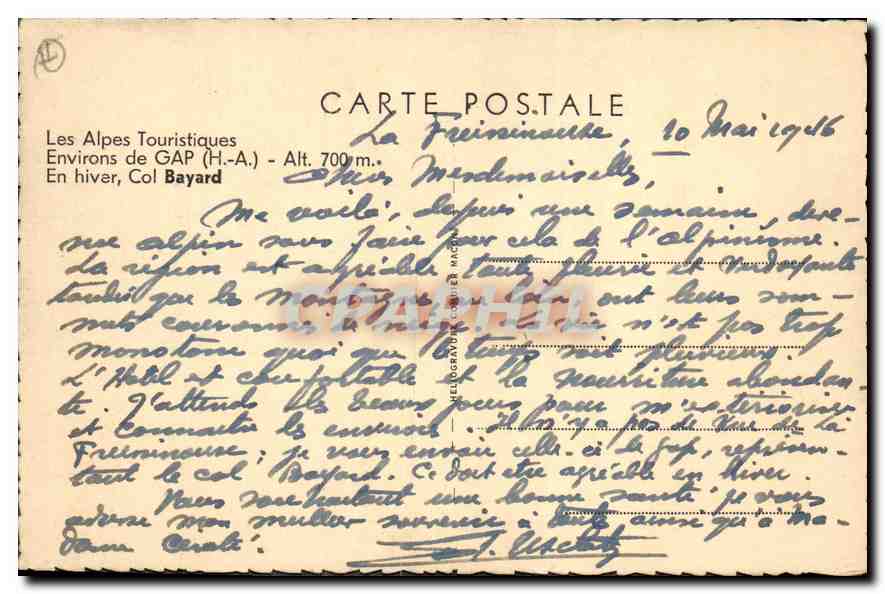 CARTE POSTALE
Les Alpes Touristiques
Environs de GAP (H.-A.) - Alt. 700 m.
En hiver, Col Bayard
HELIOGRAVURE CORDIER MACON
CPAPHIL
La Freissinouse, 10 Mai 1946
Chères Mesdemoiselles,
Me voilà, depuis une semaine, deve-
nue alpin sans faire pour cela de l'alpinisme.
La région est agréable toute fleurie et verdoyante
tandis que les montagnes au loin ont leurs som-
mets couronnés de neige. La vie n'est pas trop
monotone quoi que le temps soit pluvieux.
L'Hôtel est confortable et la nourriture abondan-
te. J'attends les beaux jours pour m'extérioriser
et connaître les environs. Il n'y a pas de vue de la
Freissinouse; je vous envoie celle-ci de Gap, représen-
tant le col Bayard. Ce doit être agréable en hiver.
Vous souhaitant une bonne santé je vous
adresse mon meilleur souvenir à toutes ainsi qu'à Ma-
dame